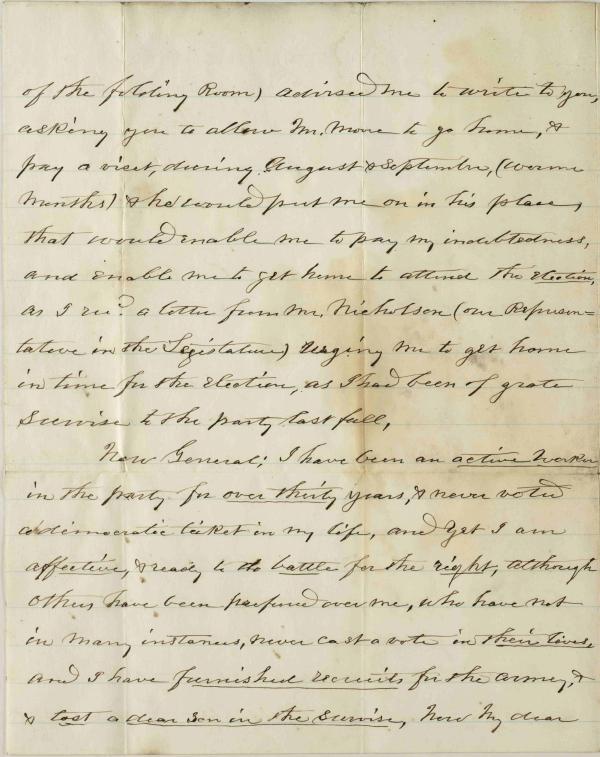 of the folding Room) advised me to write to you,
asking you to allow Mr. Moore to go home, &
pay a visit, during August & September, (worme
Months) & he would put me on in his place,
that would enable me to pay my indebtedness,
and enable me to get home to attend the Election,
as I re? a letter from Mr. Nicholson (our Represen=
tative in the Legislature) urging me to get home
in time for the election, as I had been of grate
Survise to the party last fall,
Now General; I have been an active Worker
in the party for over thirty years, & never voted
a democratic ticket in my life, and yet I am
affective, & ready to do battle for the right, although
Others have been prefured over me, who have not
in many instances, never cast a vote in their lives,
and I have furnished recruits for the army, &
& lost a dear Son in the Survise, Now My dear